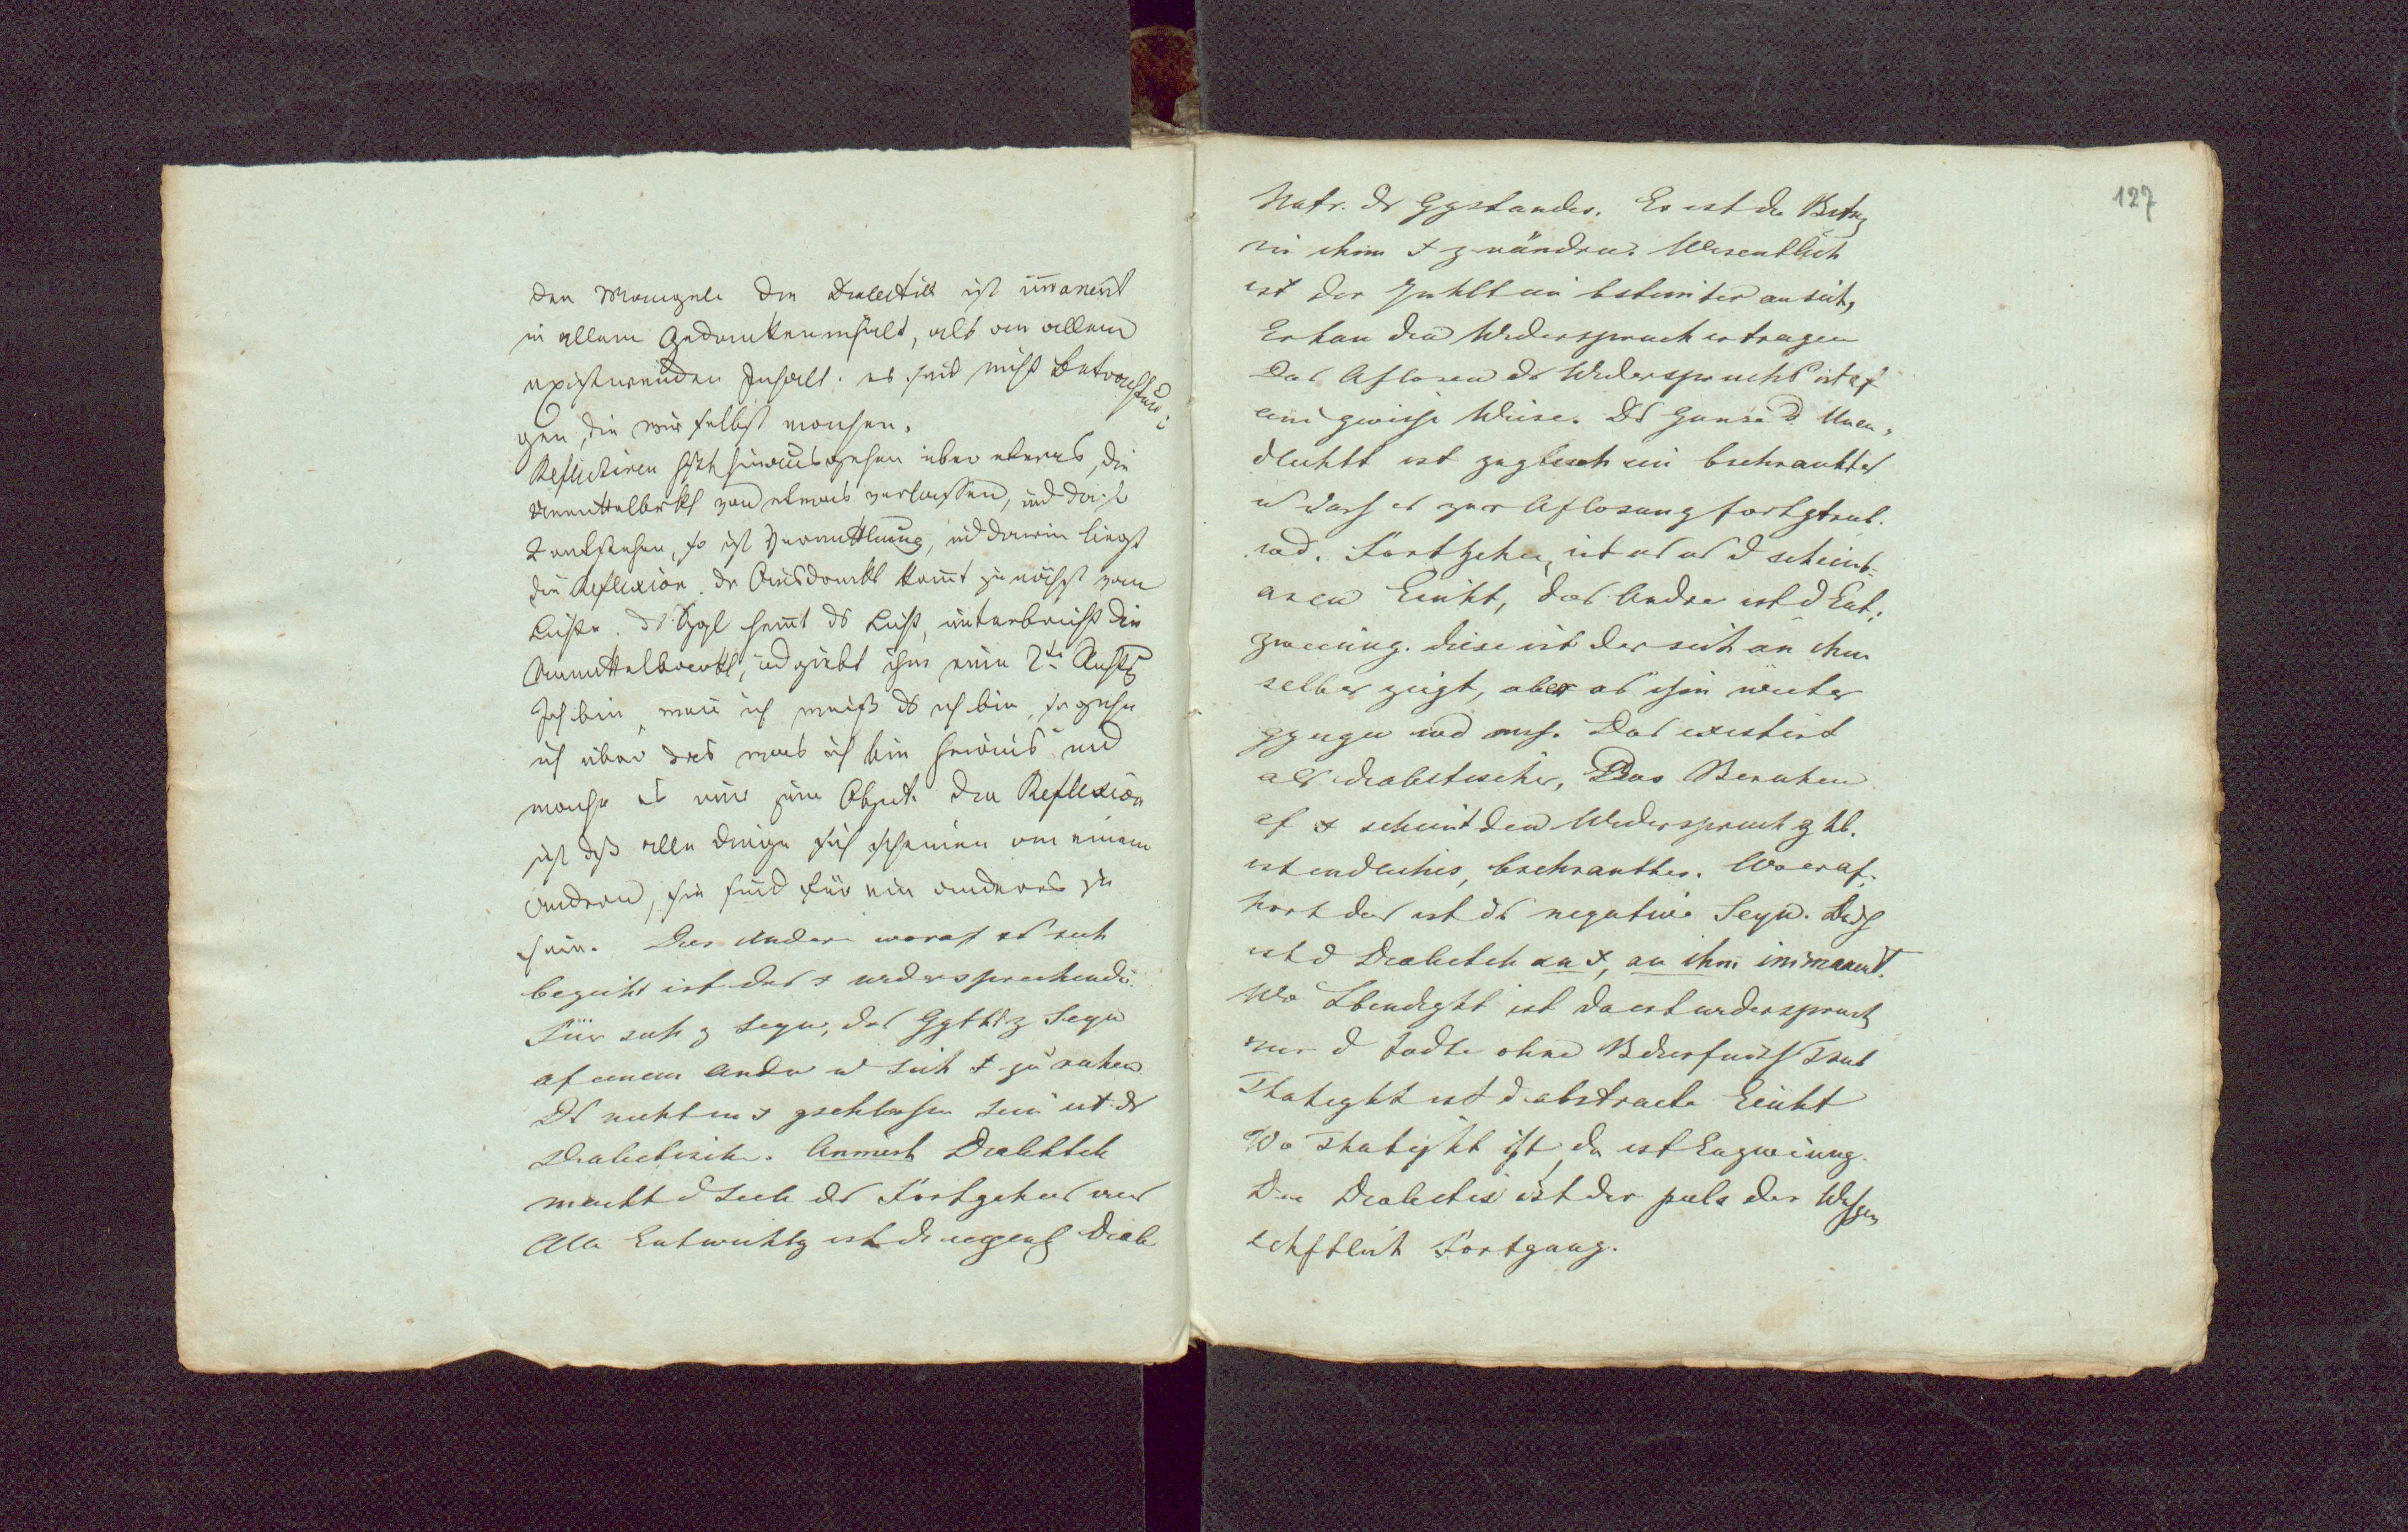 den Mangel. Die Dialectik ist im̄anent
in allem Gedankeninhalt, als an allem
existirenden Inhalt. es sind nicht Betrachtun=
gen, die wir selbst machen.
Reflectiren heißt hinausgehen über etwas, die
Unmittelbarkt von etwas verlassen, und da ist
2 entstehen, so ist Vermittlung, und darin liegt
die Reflexion. der Ausdruck kom̄t zunächst vom
Lichte. ds Spgl hem̄t ds Licht, unterbricht die
Unmittelbarkt, und giebt ihm eine 2te Richtg
Ich bin, was ich weiß ds ich bin, so gehe
ich über das was ich bin hinaus und
mache es mir zum Object. Die Reflexion
ist daß alle Dinge sich scheinen an einem
andern, sie sind für ein anderes zu
sein. Das Andere woraf es sich
bezieht ist das + widersprechende.
Für sich z seyn, das Ggthl z Seyn
af einem Andern u sich + zu ruhen
Ds nicht in + gschlossen sein ist ds
Dialectische. Anmerk Dialektik
macht d Seele ds Fortgehens aus
Alle Entwicklg ist die eigentl Diale
127
Natr. ds Ggstandes. Es ist die
in ihm + z verändern. Wesentlich
ist der Inhlt ein bstimter an sich,
Er kan den Widerspruch ertragen
Das Aflosen ds Widerspruchs ist af
eine gewisse Weise. Ds Ganze d Unen=
dlichkt ist zugleich ein bschranktes
u daß es zur Aflosung fortgtrieb.
wd. Fortgehen, ist es es d scheinb=
aren Einht, das Andre ist d Ent=
zweiung. diese ist der sich an ihm
selber zeigt, aber ab ihm weiter
ggangen wd muß. Das existirt
als dialectisches, Das Beruhen
af + scheint den Widerspruch z hb.
ist endliches, bschranktes. Wo er af=
hört das ist ds negative Seyn.
ist d Dialectik an +, an ihm im̄manent.
Wo Lbendigkt ist da ist widerspruch
nur d Todte ohne Bdürfniß Trieb
Thatigkt ist d abstracte Einht
Wo Thatigkt ist, da ist Enzweiung.
Die Dialectik ist der puls des Wissen
schftlich Fortgang.